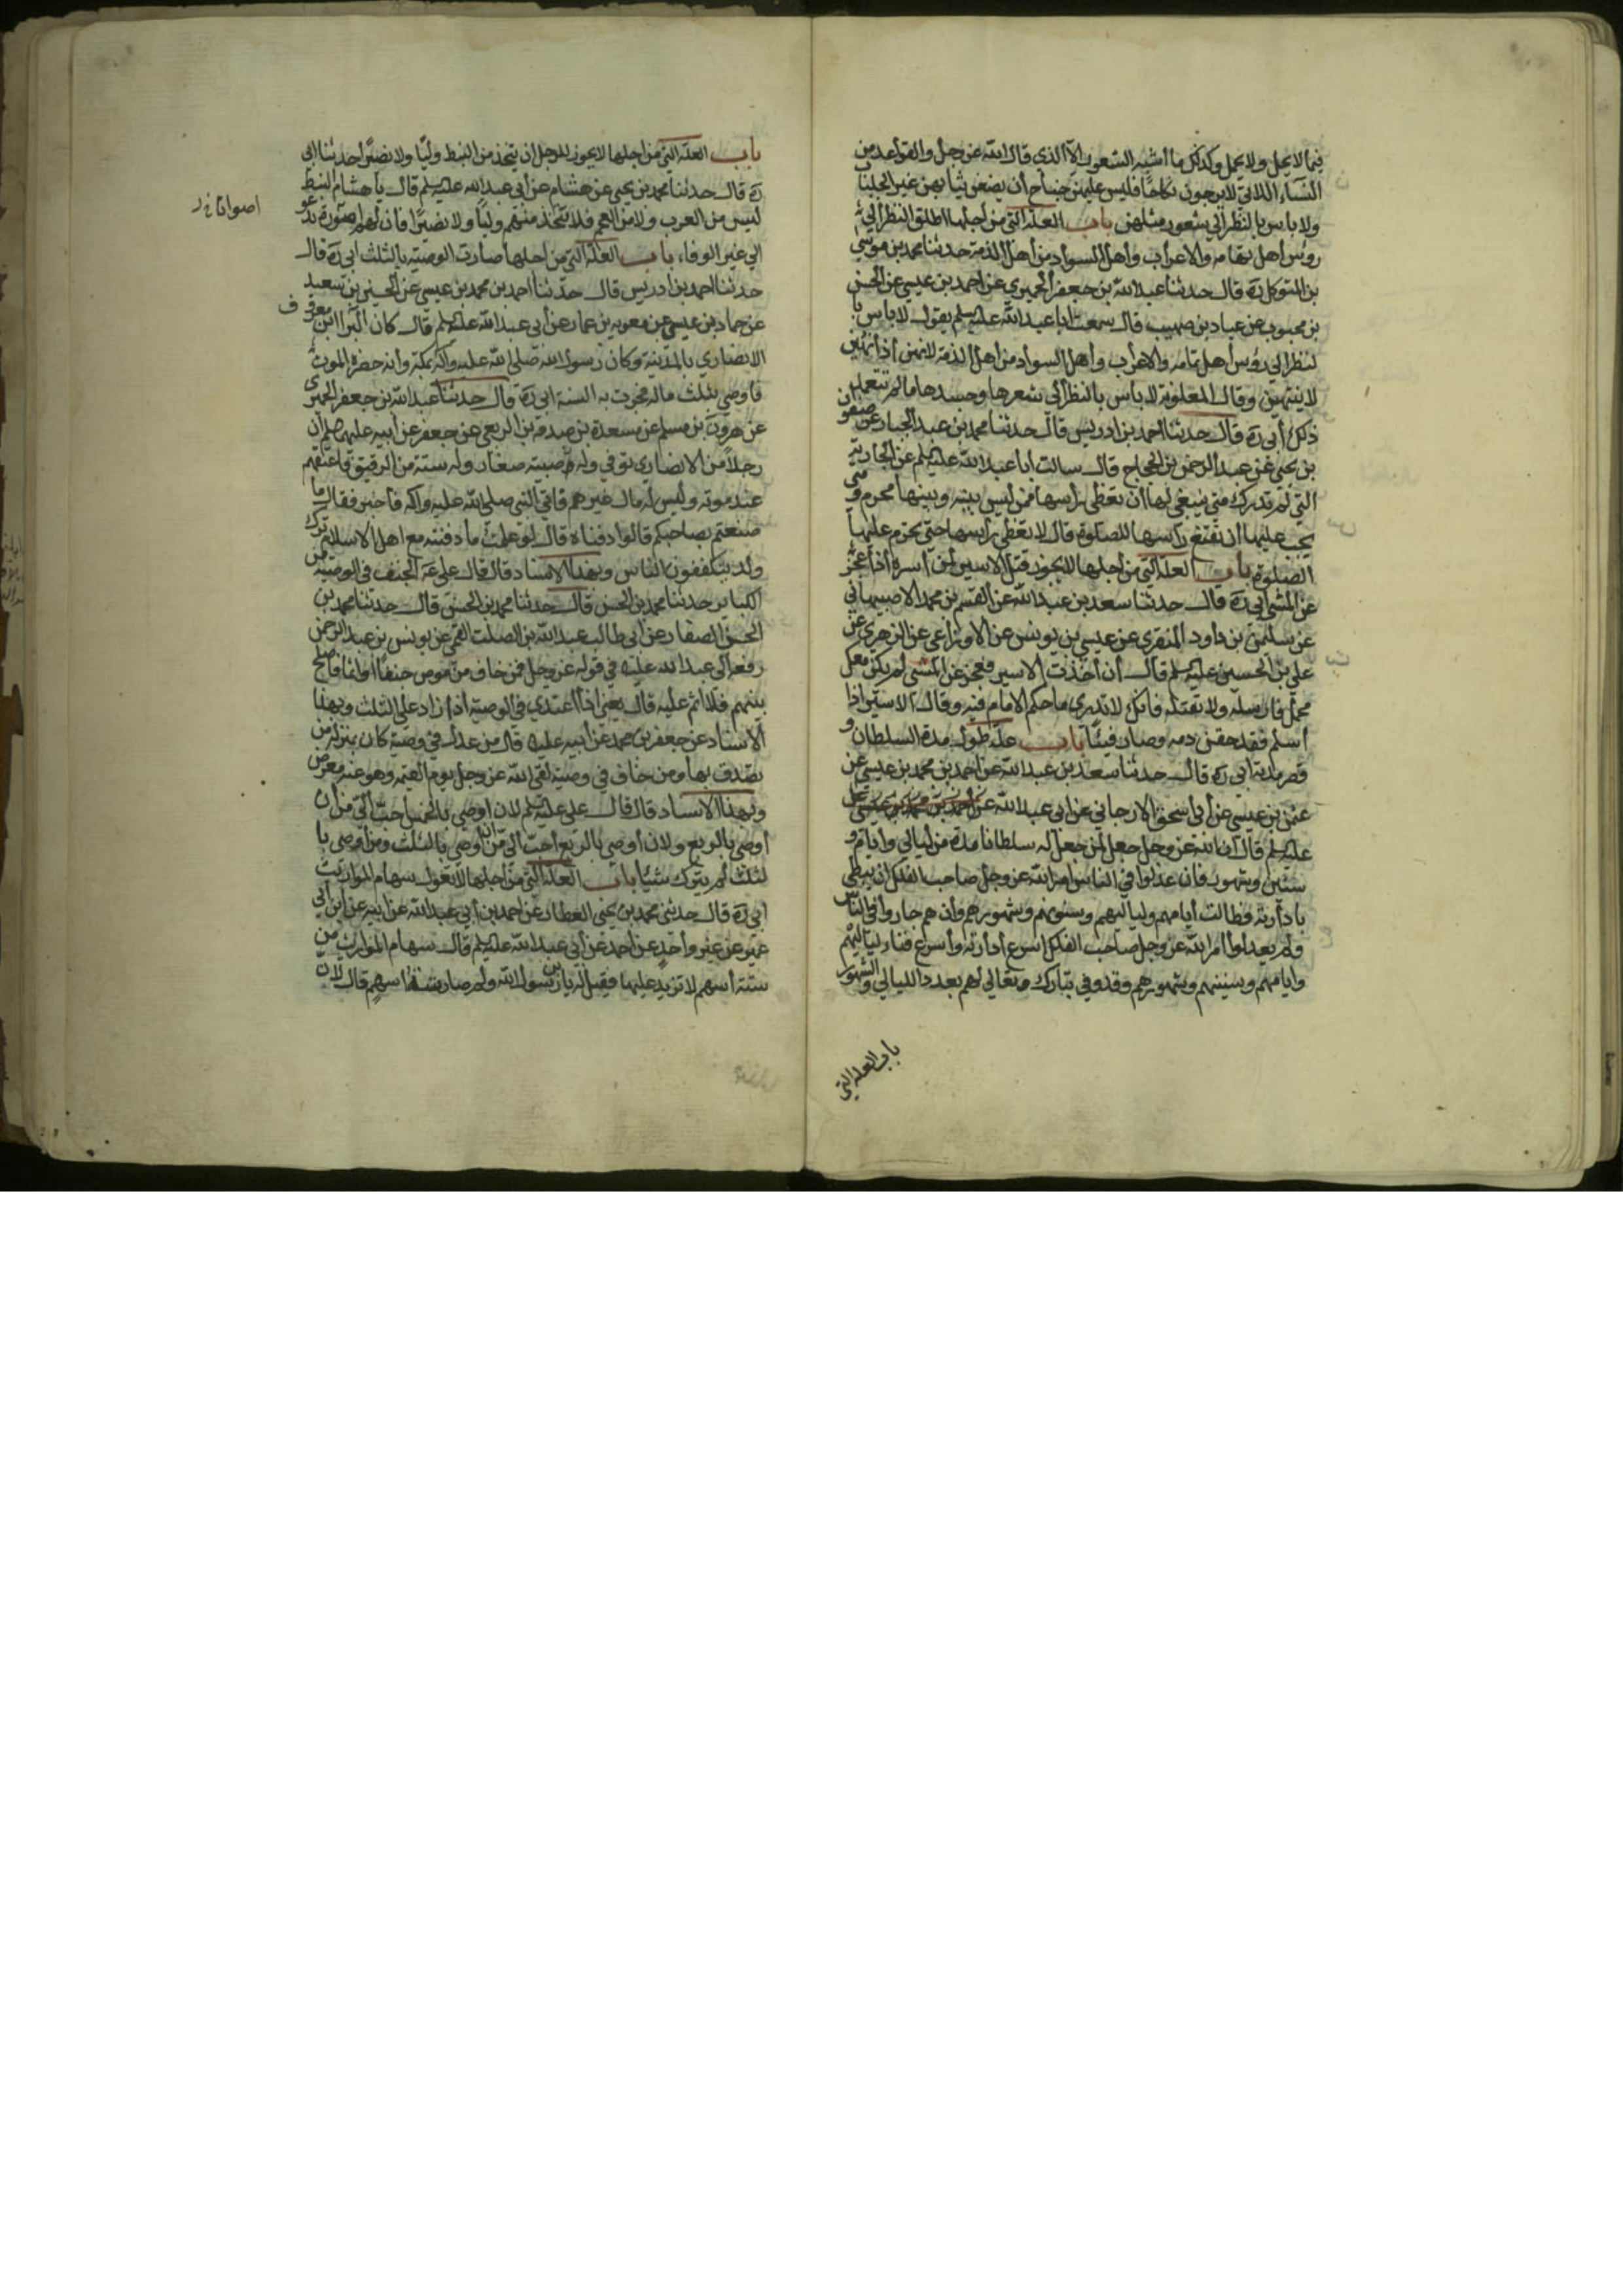 فيما لا يحل ولا يحمل وكذلك ما أشبه الشعور الا الذي قال الله عز وجل والقواعد من
النساء اللاتي لا يرجون نكاحا فليس عليهن جناح أن يضعن ثيابهن غير الجلباب
ولا باس بالنظر الى شعور مثلهن باب العلة التي من اجلها اطلق النظر الى
رؤس أهل تهامه والاعراب وأهل السواد من أهل الذمة حدثنا محمد بن موسى
بن المتوكل ره قال حدثنا عبد الله بن جعفر الحميري عن احمد بن عيسى عن الحسن
بن محبوب عن عباد بن صهيب قال سمعت ابا عبد الله عليه السلم يقول لا باس با
لنظر الى رؤس أهل تهامه والاعراب وأهل السواد من أهل الذمة لانهن اذا نهين
لا ينتهين وقال المغلوبة لا باس بالنظر الى شعرها وجسدها ما لم تتعمد
ذلك أبي ره قال حدثنا احمد بن ادريس قال حدثنا محمد بن عبد الجبار عن صفوان
بن يحيى عن عبد الرحمن بن الحجاج قال سالت ابا عبد الله عليه السلم عن الجارية
التي لم تدرك متى ينبغي لها أن تغطى رأسها ممن ليس بينه وبينها محرم ومتى
يجب عليها ان تقنع رأسها للصلوة قال لا تغطى رأسها حتى تحرم عليها
الصلوة باب العلة التي من أجلها لا يجوز قتل الاسير لمن أسره اذا عجز
عن المشى أبي ره قال حدثنا سعد بن عبد الله عن القسم بن محمد الاصبهاني
عن سليمن بن داود المنقري عن عيسى بن يونس عن الاوزاعي عن الزهري عن
علي بن الحسين عليه السلم قال أن أخذت الاسير فعجز عن المشى لم يكن معك
محمل فارسله ولا تقتله فانك لا تدري ما حكم الامام فيه وقال الاسير اذا
اسلم فقد حقن دمه وصار فيئا باب علة طول مدة السلطان و
قصر مدته أبي ره قال حدثنا سعد بن عبد الله عن احمد بن محمد بن عيسى عن
عثمن بن عيسى عن أبي اسحق الارجاني عن أبي عبد الله عن احمد بن محمد بن عيسى عن
عليه السلم قال ان الله عز وجل جعل لمن جعل له سلطانا مدة من ليالي وايام و
سنين وشهور فان عدلوا في الناس امر الله عز وجل صاحب الفلك ان يبطى
بادارته فطالت أيامهم ولياليهم وسنونهم وشهورهم وان هم جاروا في الناس
ولم يعدلوا أمر الله عز وجل صاحب الفلك اسرع أدارته وأسرع فناء لياليهم
وايامهم وسنينهم وشهورهم وقد وفي تبارك وتعالى لهم بعدد الليالي والشهور
باب العلة التي
باب العلة التي من اجلها لا يجوز للرجل ان يتخذ من النبط وليا ولا نصيرا حدثنا أبي
ره قال حدثنا محمد بن يحيى عن هشام عن أبي عبد الله عليه السلم قال يا هشام النبط
ليس من العرب ولا من العجم فلا تتخذ منهم وليا ولا نصيرا فان لهم صورة تدعو
الى غير الوفاء باب العلة التي من اجلها صارت الوصية بالثلث أبي ره قال
حدثنا احمد بن ادريس قال حدثنا احمد بن محمد بن عيسى عن الحسين بن سعيد
عن حماد بن عيسى عن معويه بن عمار عن أبي عبد الله عليه السلم قال كان البراء ابن معرور
الانصاري بالمدينة وكان رسول الله صلى الله عليه وآله بمكة وانه حضره الموت
فاوصى بثلث ماله فجرت به السنة أبي ره قال حدثنا عبد الله بن جعفر الحميري
عن هرون بن مسلم عن مسعدة بن صدقه بن الربعي عن جعفر عن أبيه عليهما السلم أن
رجلا من الانصاري توفي وله صبية صغار وله ستة من الرقيق فاعتقهم
عند موته وليس له مال غيرهم فاتي النبي صلى الله عليه وآله فاخبر فقال ما
صنعتم بصاحبكم قالوا دفناه قال لو علمت ما دفنته مع اهل الاسلام ترك
ولد يتكففون الناس وبهذا الاسناد قال قال علي ع الجنف في الوصية من
الكباير حدثنا محمد بن الحسن قال حدثنا محمد بن الحسن قال حدثنا محمد بن
الحسن الصفار عن ابي طالب عبد الله بن الصلت القمي عن يونس بن عبد الرحمن
رفعه الى عبد الله عليه في قوله عز وجل فمن خاف من موص جنفا أو اثما فاصلح
بينهم فلا اثم عليه قال يعني اذا اعتدى في الوصية اذا زاد على الثلث وبهذا
الاسناد عن جعفر بن محمد عن أبيه عليه قال من عدل في وصية كان بمنزلة من
تصدق بها ومن خاف في وصية لقى الله عز وجل يوم القيمه وهو عنه معرض
وبهذا الاسناد قال قال علي عليه السلم لان اوصى بالخمس احب الي من أن
أوصى بالربع ولان أوصى بالربع أحب الي من ان أوصى بالثلث ومن اوصى با
لثلث لم يترك شيئا باب العلة التي من اجلها لا تعول سهام المواريث
أبي ره قال حدثني محمد بن يحيى العطار عن احمد بن أبي عبد الله عن ابيه عن ابن أبي
عمير عن غير واحد عن احد عن أبي عبد الله عليه السلم قال سهام المواريث من
ستة أسهم لا تزيد عليها فقيل له يابن رسول الله ولم صارت ستة اسهم قال لان
اصواتا خ ر